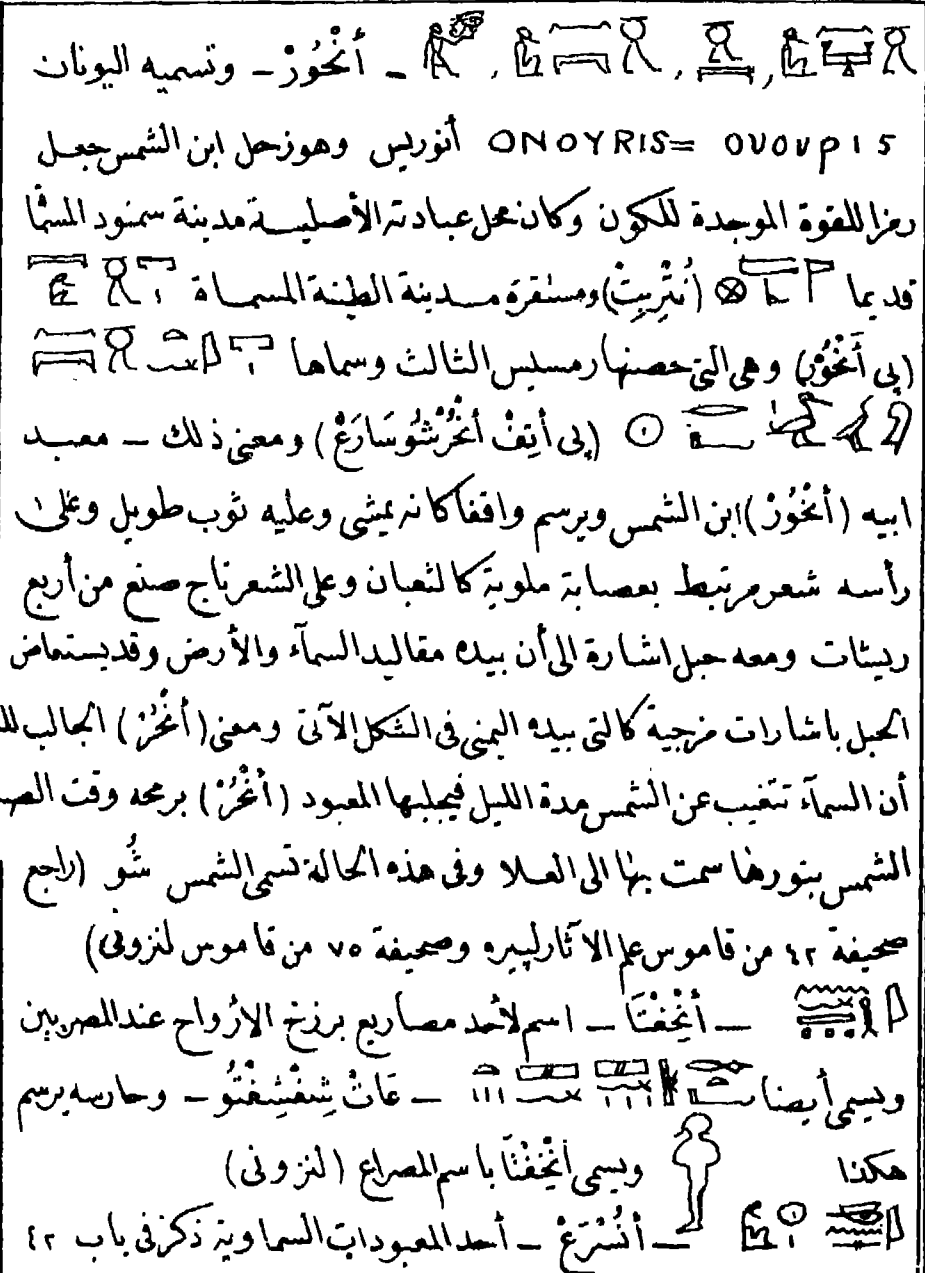 ـ أَنْخُورْ ـ وتسميه اليونان
ONOYRIS= OVOVPIS أنوريس وهو زحل ابن الشمس جعل
رمزا للقوة الموجدة للكون وكان محل عبادته الأصلية مدينة سمنود المسماة
قديما (نُتْرِبيتْ) ومستقره مدينة الطينة المسماة
(پى أَنْخُورْ) وهى التى حصنها رمسيس الثالث وسماها
(پى أَتِفْ أَنْخُرْشُوسَارَعْ) ومعنى ذلك ـ معبد
ابيه (أَنْخُورْ) ابن الشمس ويرسم واقفا كأنه يمشى وعليه ثوب طويل وعلى
رأسه شعر مرتبط بعصابة ملوية كالثعبان وعلى الشعر تاج صنع من أربع
ريشات ومعه حبل اشارة الى أن بيده مقاليد السمآء والأرض وقد يستعاض
الحبل باشارات مزجية كالتى بيده اليمنى فى الشكل الآتى ومعنى (أَنْخُرْ) الجالب
أن السمآء تتغيب عن الشمس مدة الليل فيجلبها المعبود (أَنْخُرْ) برمحه وقت
الشمس بنورها سمت بها الى العلا وفى هذه الحالة تسمى الشمس شُو (راجع
صحيفة ٤٢ من قاموس علم الآثار لپيره وصحيفة ٧٥ من قاموس لنزونى)
ـ أَنْخِفْتَا ـ اسم لأحد مصاريع برزخ الأرواح عند المصريين
ويسمى أيضا ـ عَاتْ شِفْشِفْتُو ـ وحارسه يرسم
هكذا ويسمى أَنْخِفْتَا باسم المصراع (لنزونى)
ـ أَنُسْرَعْ ـ أحد المعبودات السماوية ذكر فى باب ٤٢